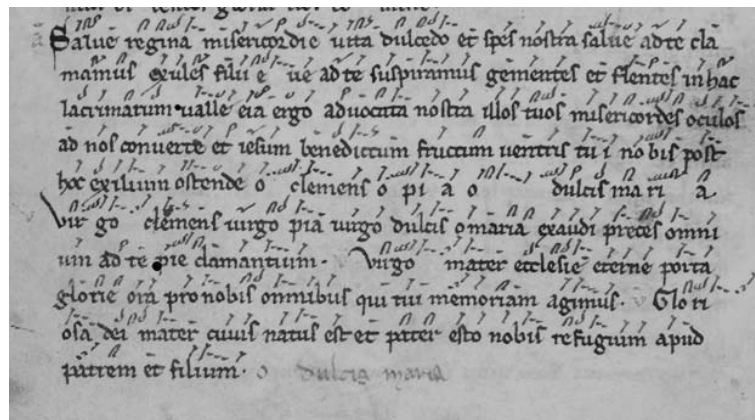 Salue regina misericordie uita dulcedo et spes nostra salue ad te cla
mamus exules filii e ue ad te suspiramus gementes et flentes in hac
lacrimarum ualle eia ergo aduocata nostra illos tuos misericordes oculos
ad nos conuerte et iesum benedictum fructum uentris tui nobis post
hoc exilium ostende o clemens o pi a o dulcis mari a
Vir go clemens uirgo pia uirgo dulcis o maria exaudi preces omni
um ad te pie clamantium. Virgo mater ecclesie eterne porta
glorie ora pro nobis omnibus qui tui memoriam agimus. Glori
osa dei mater cuius natus est et pater esto nobis refugium apud
patrem et filium. o dulcis maria